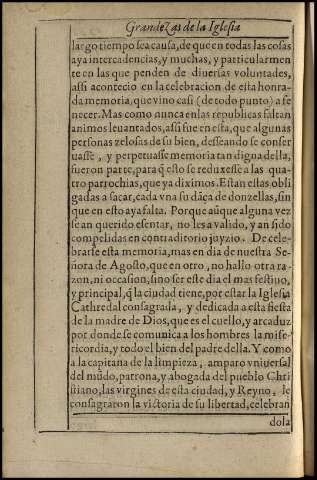 Grandezas de la Iglesia
largo tiempo sea causa, de que en todas las cosas
aya intercadencias, y muchas, y particularmen
te en las que penden de diuersas voluntades,
assi acontecio en la celebracion de esta honra-
da memoria, que vino casi (de todo punto) a fe
necer. Mas como nunca en las republicas faltan
animos leuantados, assi fue en esta, que algunas
personas zelosas de su bien, desseando se conser
uasse, y perpetuasse memoria tan digna della,
fueron parte, para q̃ esto se reduxesse a las qua-
tro parrochias, que ya diximos. Estan estas obli
gadas a sacar, cada vna su dãça de donzellas, sin
que en esto aya falta. Porque aũque alguna vez
se an querido esentar, no les a valido, y an sido
compelidas en contraditorio juyzio. De cele-
brarse esta memoria, mas en dia de nuestra Se-
ñora de Agosto, que en otro, no hallo otra ra-
zon, ni occasion, sino ser este dia el mas festiuo,
y principal, q̃ la ciudad tiene, por estar la Iglesia
Cathredal consagrada, y dedicada a esta fiesta
de la madre de Dios, que es el cuello, y arcaduz
por donde se comunica a los hombres la mise-
ricordia, y todo el bien del padre della. Y como
a la capitana de la limpieza, amparo vniuersal
del mũdo, patrona, y abogada del pueblo Chri
stiano, las virgines de esta ciudad, y Reyno, le
consagraron la victoria de su libertad, celebran
dola